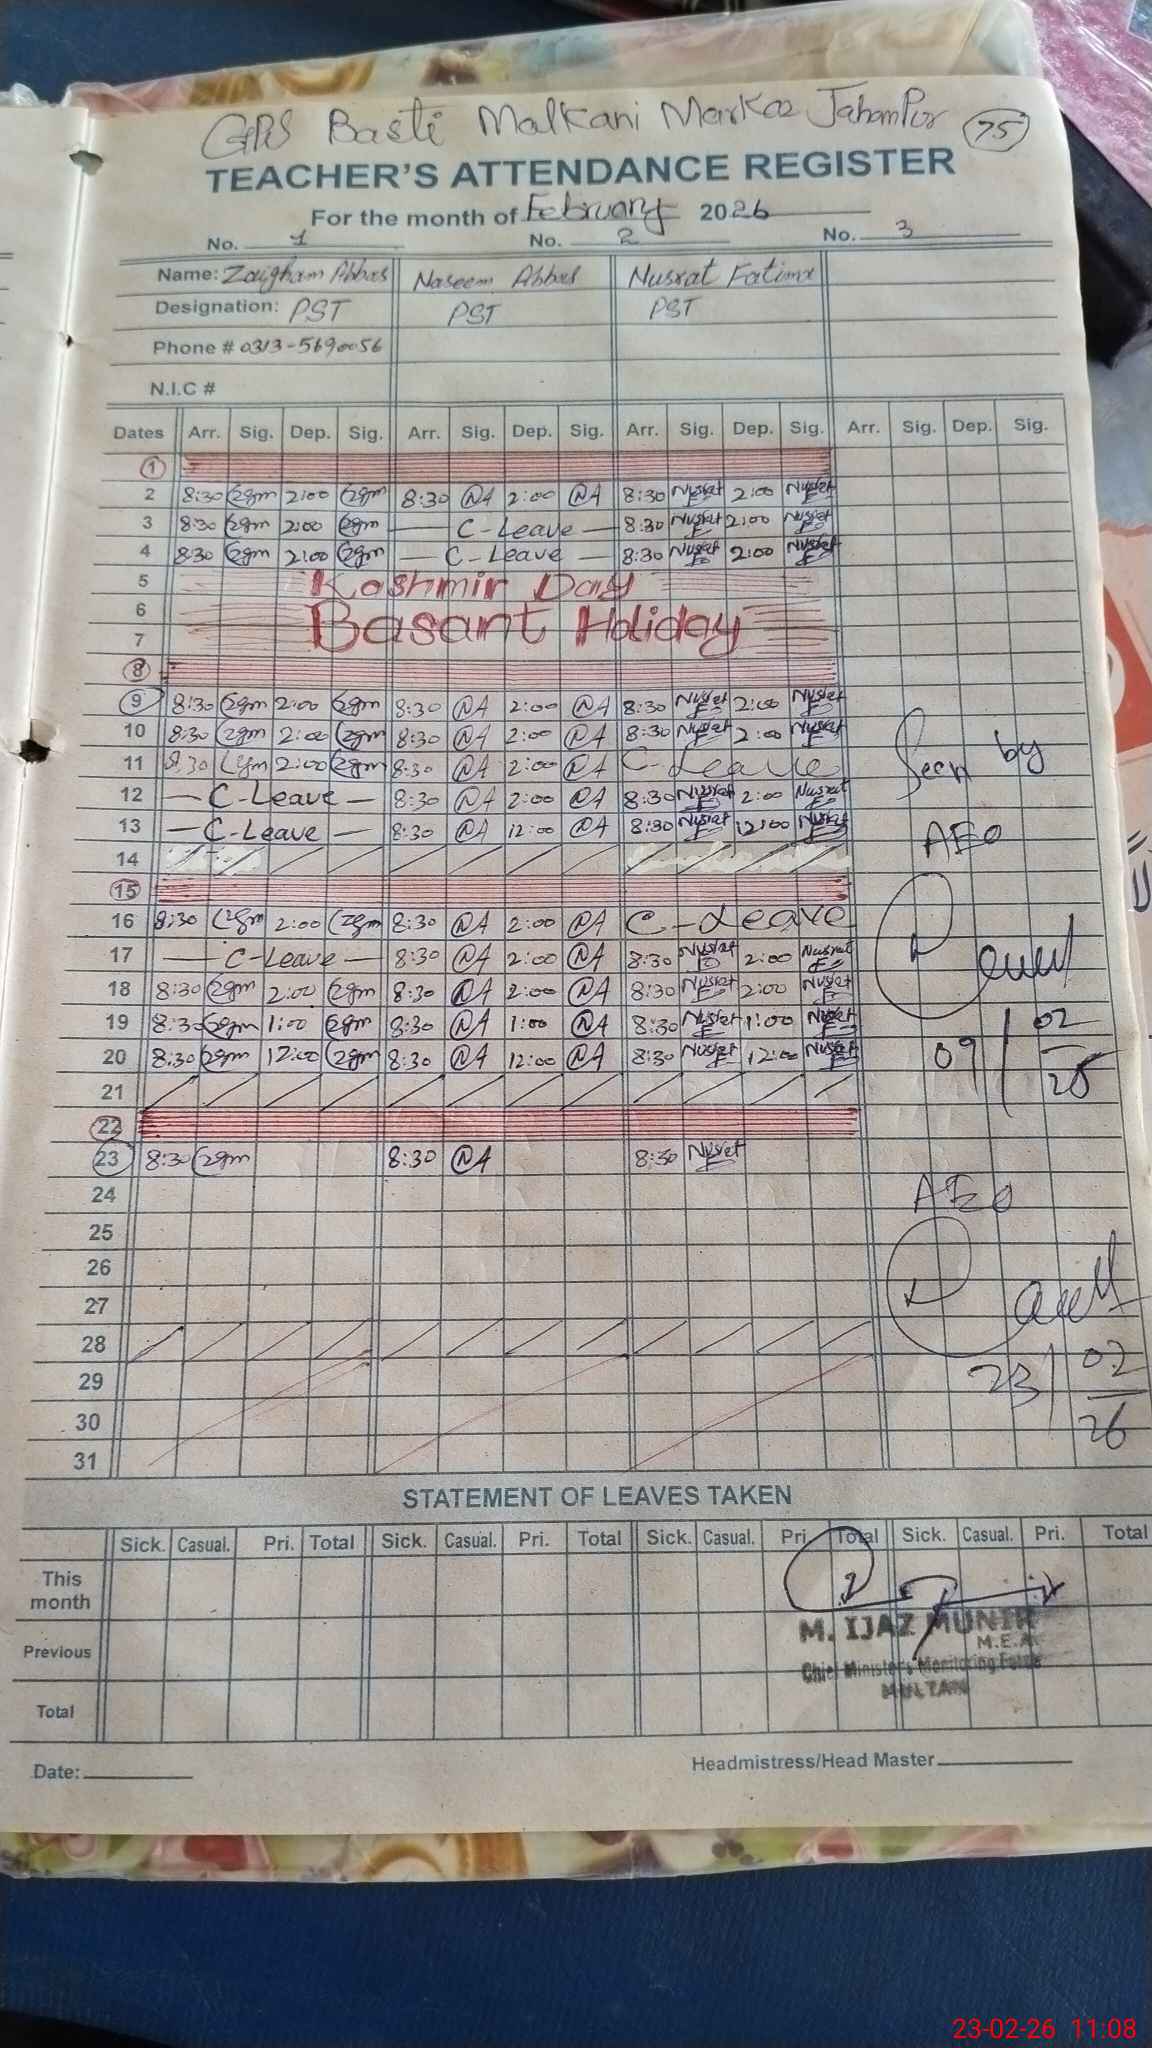 GPS Basti Malkani Markaz JahanPur 75
TEACHER'S ATTENDANCE REGISTER
For the month of February 2026
No. 1 No. 2 No. 3
Name: Zaigham Abbas Naseem Abbas Nusrat Fatima
Designation: PST PST PST
Phone # 0313-5690056
N.I.C #
Dates Arr. Sig. Dep. Sig. Arr. Sig. Dep. Sig. Arr. Sig. Dep. Sig. Arr. Sig. Dep. Sig.
1
2 8:30 Zgm 2:00 Zgm 8:30 NA 2:00 NA 8:30 Nusrat F 2:00 Nusrat F
3 8:30 Zgm 2:00 Zgm — C-Leave — 8:30 Nusrat F 2:00 Nusrat F
4 8:30 Zgm 2:00 Zgm — C-Leave — 8:30 Nusrat F 2:00 Nusrat F
5 Kashmir Day
6 Basant Holiday
7
8
9 8:30 Zgm 2:00 Zgm 8:30 NA 2:00 NA 8:30 Nusrat F 2:00 Nusrat F
10 8:30 Zgm 2:00 Zgm 8:30 NA 2:00 NA 8:30 Nusrat F 2:00 Nusrat F
11 8:30 Zgm 2:00 Zgm 8:30 NA 2:00 NA C-Leave Seen by
12 — C-Leave — 8:30 NA 2:00 NA 8:30 Nusrat F 2:00 Nusrat F
13 — C-Leave — 8:30 NA 12:00 NA 8:30 Nusrat F 12:00 Nusrat F AEO
14
15
16 8:30 Zgm 2:00 Zgm 8:30 NA 2:00 NA C-Leave
17 — C-Leave — 8:30 NA 2:00 NA 8:30 Nusrat F 2:00 Nusrat F
18 8:30 Zgm 2:00 Zgm 8:30 NA 2:00 NA 8:30 Nusrat F 2:00 Nusrat F
19 8:30 Zgm 1:00 Zgm 8:30 NA 1:00 NA 8:30 Nusrat F 1:00 Nusrat F
20 8:30 Zgm 12:00 Zgm 8:30 NA 12:00 NA 8:30 Nusrat F 12:00 Nusrat F 09/02/26
21
22
23 8:30 Zgm 8:30 NA 8:30 Nusrat F
24 AEO
25
26
27
28
29 23/02/26
30
31
STATEMENT OF LEAVES TAKEN
Sick. Casual. Pri. Total Sick. Casual. Pri. Total Sick. Casual. Pri. Total Sick. Casual. Pri. Total
This month
M. IJAZ MUNIR
M.E.A.
Previous
Chief Minister's Monitoring Force
MULTAN
Total
Date: Headmistress/Head Master
23-02-26 11:08